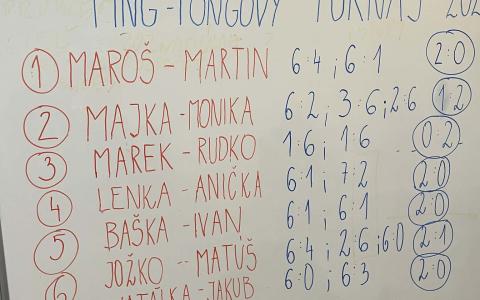 PING-PONGOVÝ TURNAJ 202
1 MAROŠ - MARTIN 6:4 ; 6:1 2:0
2 MAJKA - MONIKA 6:2 ; 3:6 ; 2:6 1:2
3 MAREK - RUDKO 1:6 ; 1:6 0:2
4 LENKA - ANIČKA 6:1 ; 7:2 2:0
5 BAŠKA - IVAN 6:1 ; 6:1 2:0
6 JOŽKO - MATÚŠ 6:4 ; 2:6 ; 6:0 2:1
- JAKUB 6:0 ; 6:3 2:0